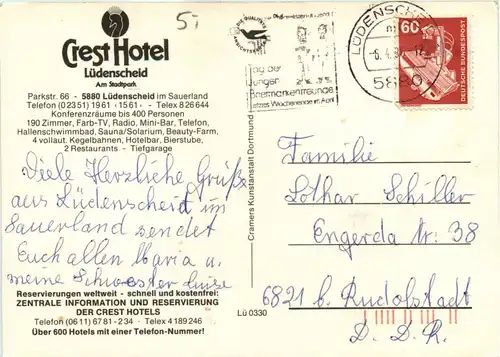 5,-
Crest Hotel
Lüdenscheid
Am Stadtpark
Parkstr. 66 - 5880 Lüdenscheid im Sauerland
Telefon (02351) 1961 · 1561 · Telex 826644
Konferenzräume bis 400 Personen
190 Zimmer, Farb-TV, Radio, Mini-Bar, Telefon,
Hallenschwimmbad, Sauna/Solarium, Beauty-Farm,
4 vollaut. Kegelbahnen, Hotelbar, Bierstube,
2 Restaurants - Tiefgarage
Viele Herzliche Grüße
aus Lüdenscheid im
Sauerland sendet
Euch allen Maria u.
meine Schwester Luise
Reservierungen weltweit - schnell und kostenfrei:
ZENTRALE INFORMATION UND RESERVIERUNG
DER CREST HOTELS
Telefon (0611) 6781-234 · Telex 4189246
Über 600 Hotels mit einer Telefon-Nummer!
Cramers Kunstanstalt Dortmund
Lü 0330
Tag der
Jungen
Briefmarkenfreunde
Letztes Wochenende im April
LÜDENSCHEID
5880
60
DEUTSCHE BUNDESPOST
Familie
Lothar Schiller
Engerda Nr. 38
6821 b. Rudolstadt
D. D. R.